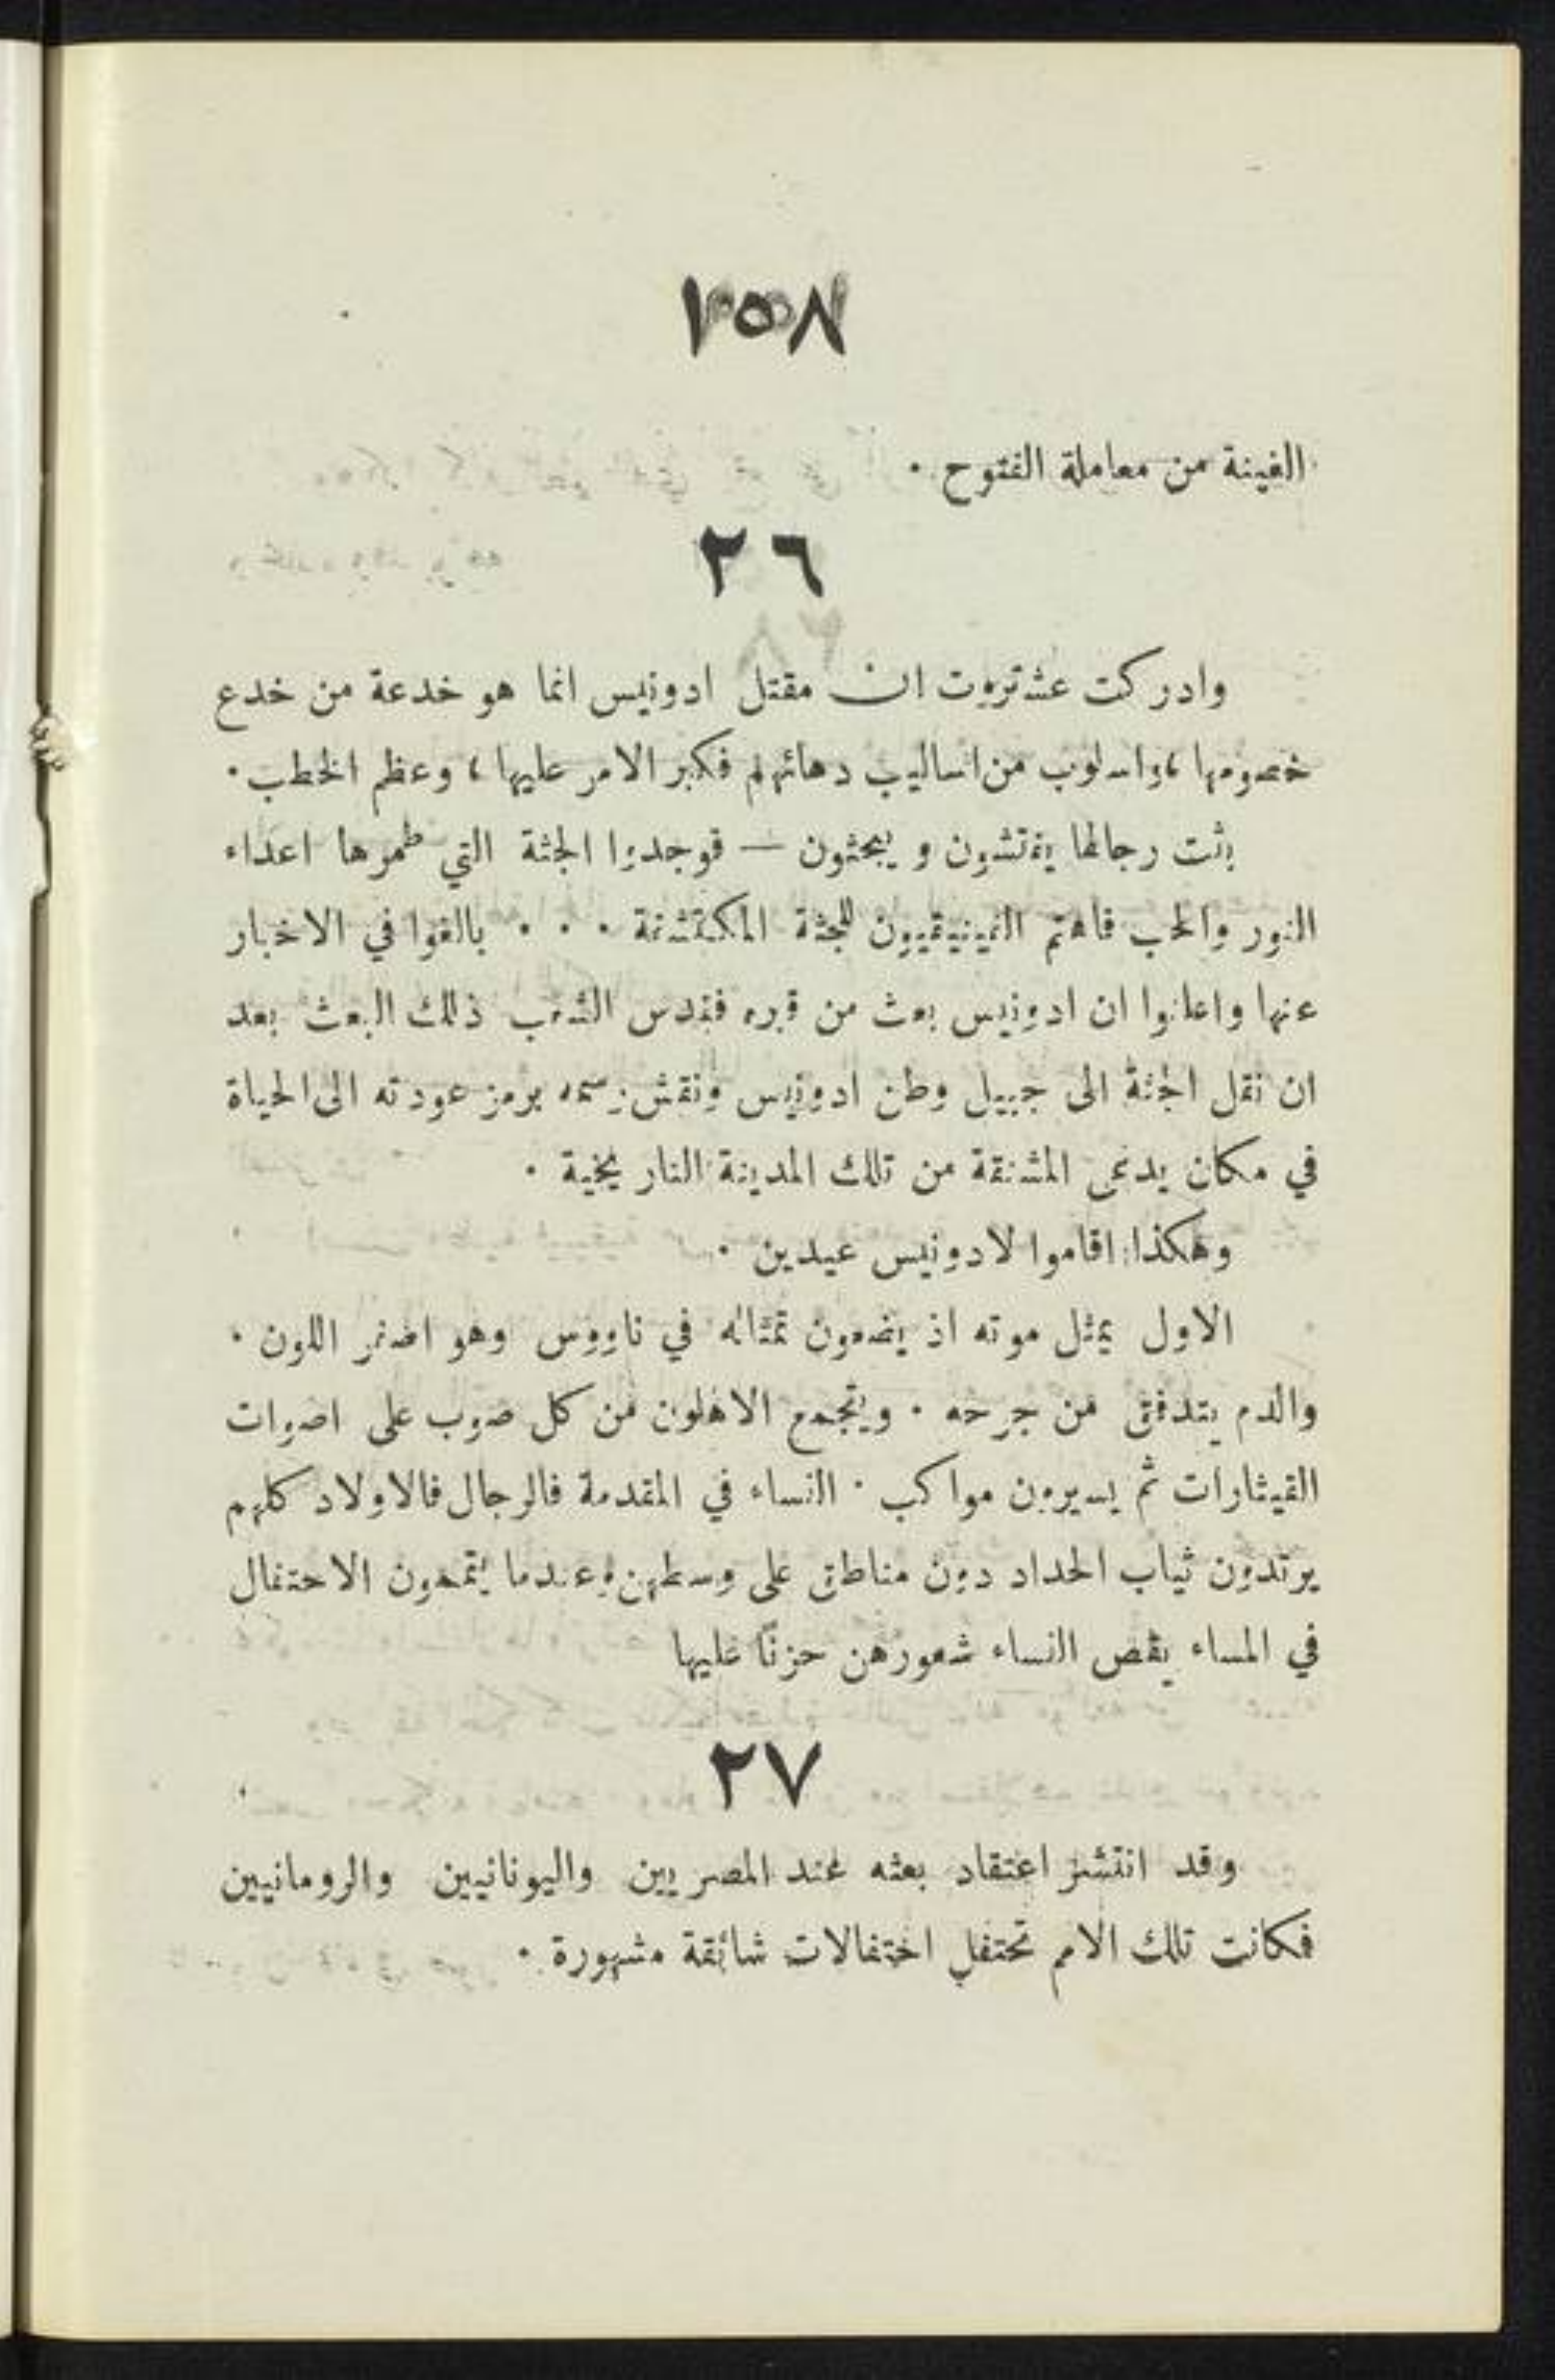 ١٥٨
الفينة من معاملة الفتوح .
٢٦
وادركت عشتروت ان مقتل ادونيس انما هو خدعة من خدع
خصومها ، واسلوب من اساليب دهائهم فكبر الامر عليها ، وعظم الخطب .
بثت رجالها يفتشون و يبحثون — فوجدوا الجثة التي طمرها اعداء
النور والحب فاهتم الفينيقيون للجثة المكتشفة . . . بالغوا في الاخبار
عنها واعلنوا ان ادونيس بعث من قبره فقدس الشعب ذلك البعث بعد
ان نقل الجثة الى جبيل وطن ادونيس ونقش رسمه برمز عودته الى الحياة
في مكان يدعى المشنقة من تلك المدينة التاريخية .
وهكذا اقاموا لادونيس عيدين .
الاول يمثل موته اذ يضعون تمثاله في ناووس وهو اصفر اللون .
والدم يتدفق من جرحه . ويتجمع الاهلون من كل صوب على اصوات
القيثارات ثم يسيرون مواكب . النساء في المقدمة فالرجال فالاولاد كلهم
يرتدون ثياب الحداد دون مناطق على وسطهن وعندما يتممون الاحتفال
في المساء يقص النساء شعورهن حزنًا عليها
٢٧
وقد انتشر اعتقاد بعثه عند المصريين واليونانيين والرومانيين
فكانت تلك الامم تحتفل احتفالات شائقة مشهورة .